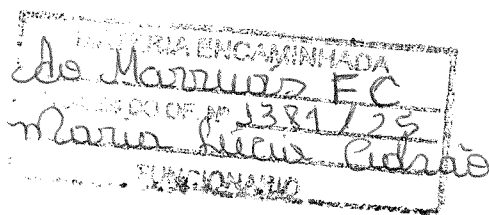 MATÉRIA ENCAMINHADA
ao Marruás FC
DO OF. Nº 1381/25
Maria Lúcia Cidrão
FUNCIONÁRIO